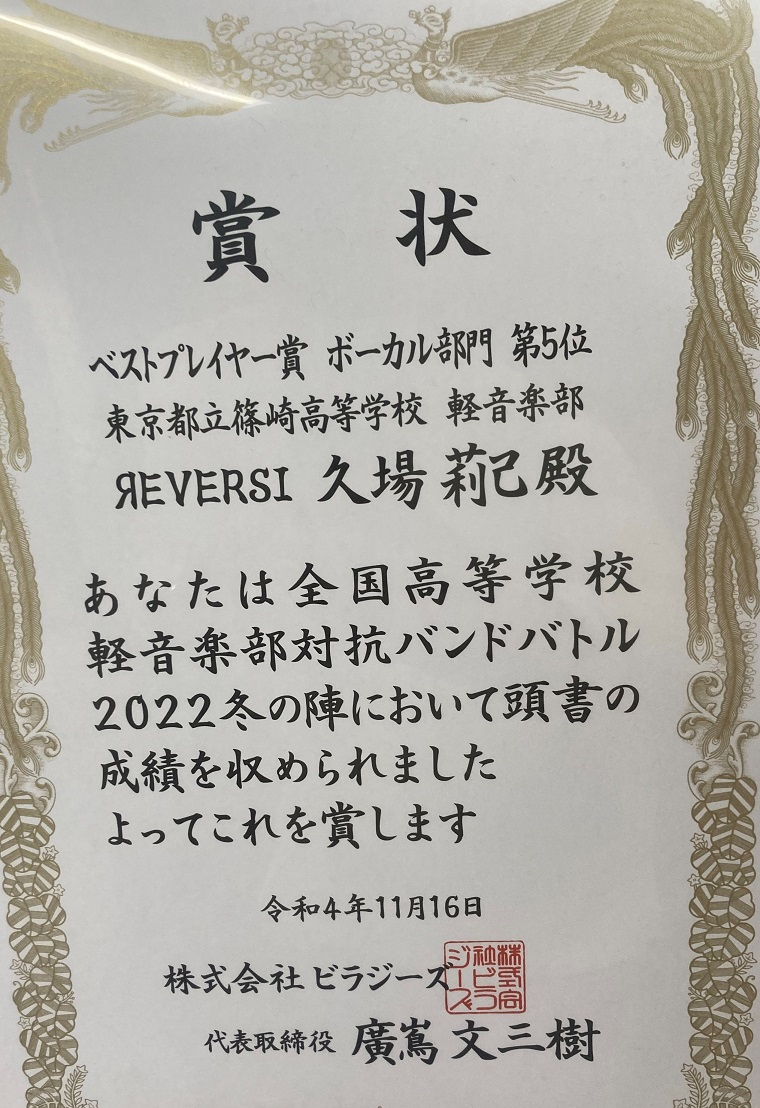 賞 状
ベストプレイヤー賞 ボーカル部門 第5位
東京都立篠崎高等学校 軽音楽部
ЯEVERSI 久場 莉己 殿
あなたは全国高等学校
軽音楽部対抗バンドバトル
2022冬の陣において頭書の
成績を収められました
よってこれを賞します
令和4年11月16日
株式会社 ビラジーズ
株式会
社ビラ
ジーズ
代表取締役 廣嶌 文三樹